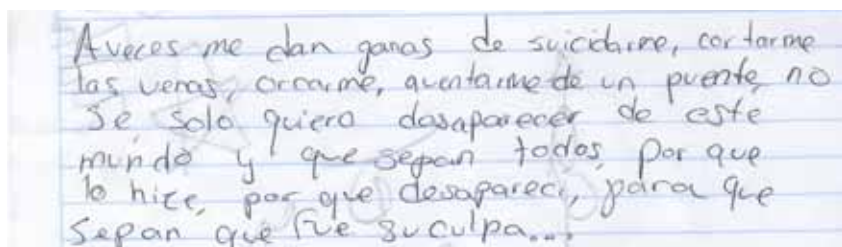 A veces me dan ganas de suicidarme, cortarme
las venas, aventarme de un puente, no
se solo quiero desaparecer de este
mundo y que sepan todos, por que
lo hice, por que desapareci, para que
sepan que fue su culpa...